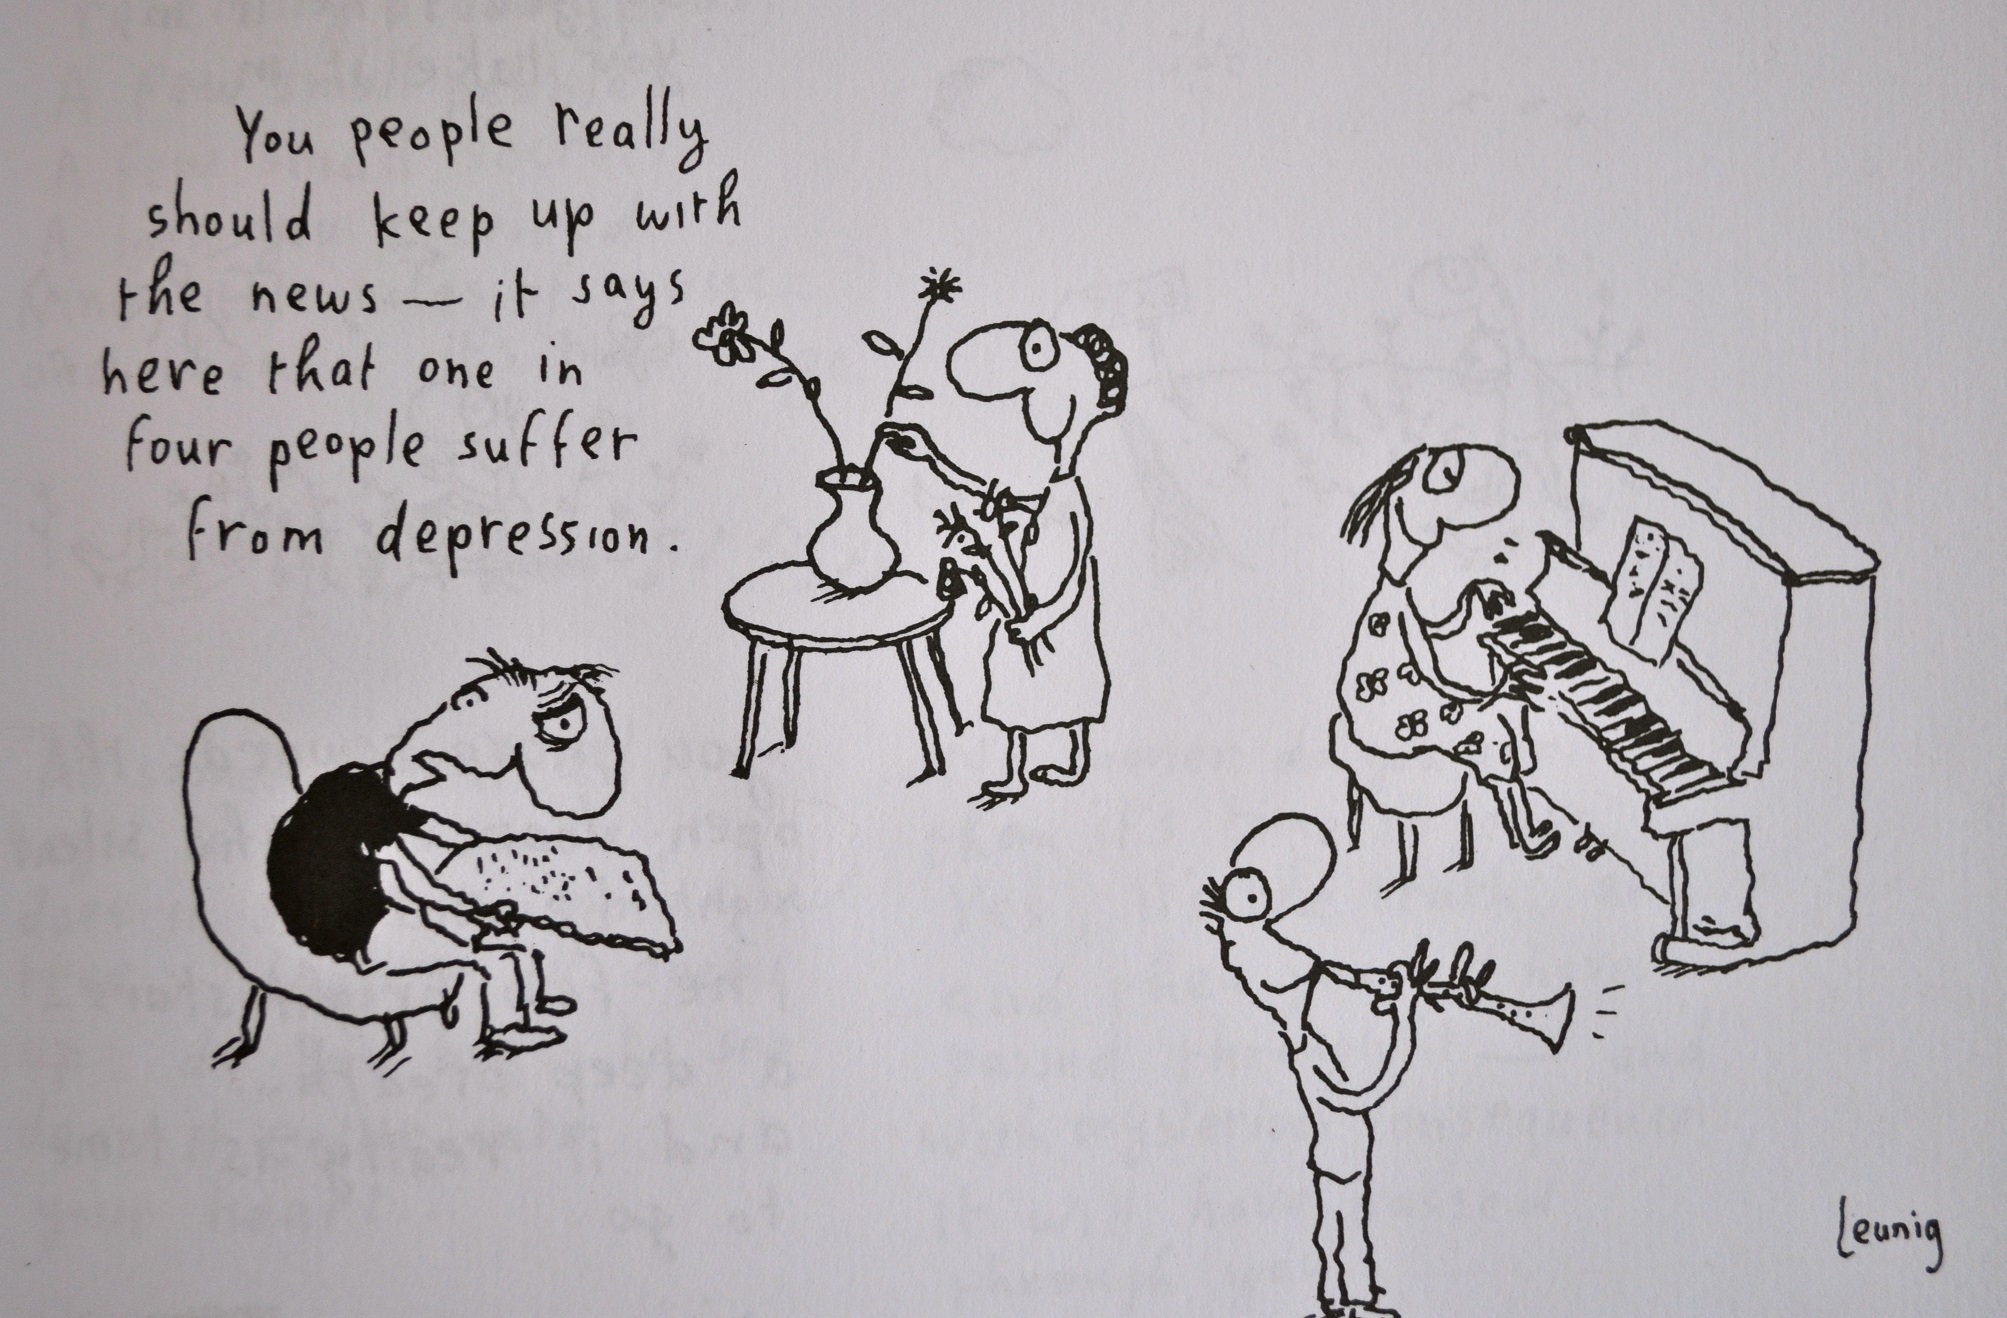 You people really
should keep up with
the news — it says
here that one in
four people suffer
from depression.
Leunig